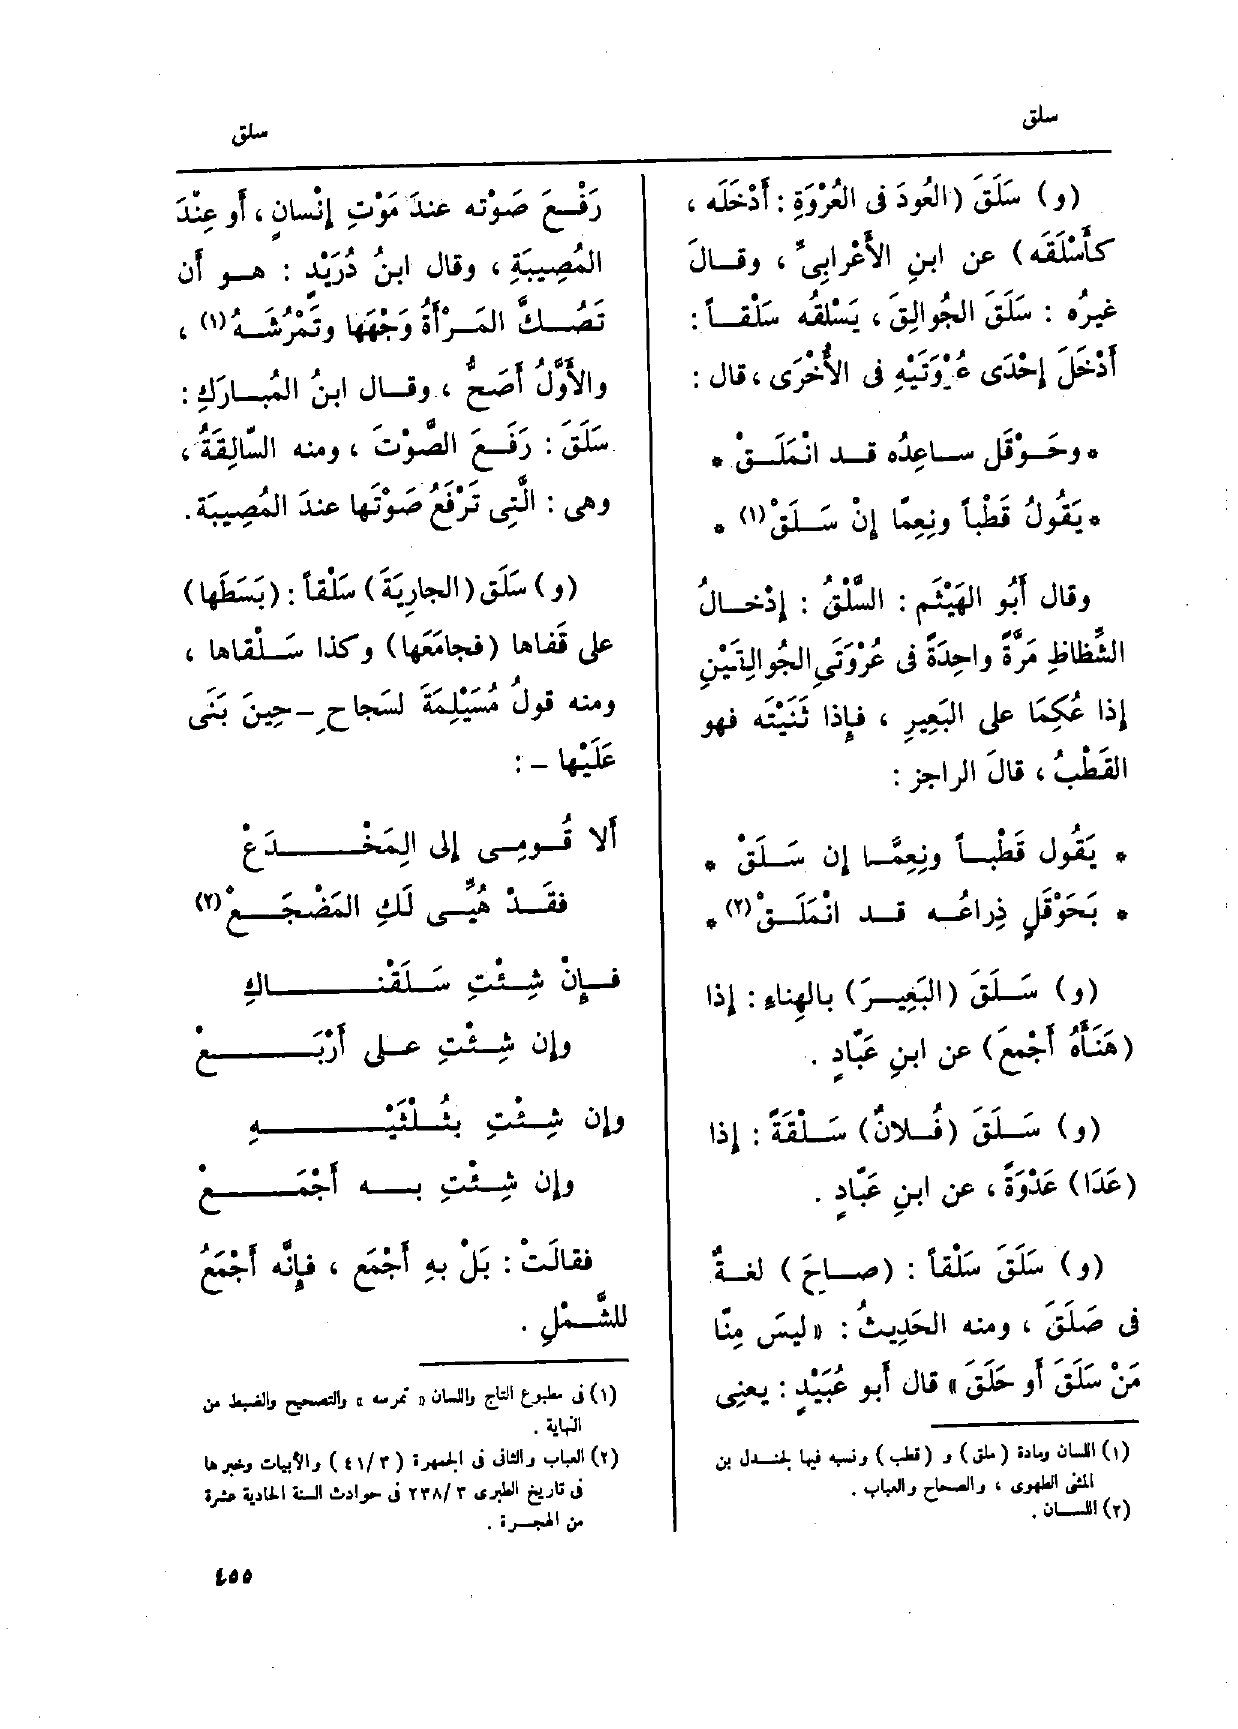 سلق
سلق
(و) سَلَقَ (العُودَ فى العُرْوَةِ : أَدْخَلَه ،
كأَسْلَقَه) عن ابنِ الأَعْرابِىِّ ، وقــالَ
غيرُه : سَلَقَ الجُوالِقَ ، يَسْلقُه سَلْقــاً :
أَدْخَلَ إِحْدَى عُرْوَتَيْهِ فى الأُخْرَى ، قال :
* وحَــوْقَل ســاعِدُه قــد انْمَلَــقْ *
* يَقُولُ قَطْباً ونِعِمّا إِنْ سَــلَقْ(١) *
وقال أَبُو الهَيْثَمِ : السَّلْقُ : إِدْخــالُ
الشِّظاظِ مَرَّةً واحِدَةً فى عُرْوَتَىِ الجُوالِقَيْنِ
إِذا عُكِمَا على البَعِيرِ ، فإِذا ثَنَيْتَه فهو
القَطْبُ ، قالَ الراجز :
* يَقُول قَطْبــاً ونِعِمَّــا إِن سَــلَقْ *
* بَحَوْقَلٍ ذِراعُــه قــد انْمَلَــقْ(٢) *
(و) سَــلَقَ (البَعِيــرَ) بالهِناءِ : إِذا
(هَنَأَهُ أَجْمعَ) عن ابنِ عَبّادٍ .
(و) سَــلَقَ (فُــلانٌ) سَــلْقَةً : إِذا
(عَدَا) عَدْوَةً ، عن ابنِ عَبّادٍ .
(و) سَلَقَ سَلْقاً : (صــاحَ) لغــةٌ
فى صَلَقَ ، ومنه الحَدِيثُ : « ليسَ مِنّا
مَنْ سَلَقَ أَو حَلَقَ » قال أَبو عُبَيْدٍ : يعنِى
(١) اللسان ومادة (ملق) و (قطب) ونسبه فيها لجندل بن
المثنى الطهوى ، والصحاح والعباب .
(٢) اللســان .
رَفْــعَ صَوْتِه عندَ مَوْتِ إِنْسانٍ ، أَو عِنْدَ
المُصِيبَةِ ، وقال ابنُ دُرَيْدٍ : هــو أَن
تَصُــكَّ المَــرْأَةُ وَجْهَها وتَمْرُشَــهُ(١) ،
والأَوَّلُ أَصَحُّ ، وقــال ابنُ المُبــارَكِ :
سَلَقَ : رَفَــعَ الصَّوْتَ ، ومنه السّالِقَةُ ،
وهى : الَّتِى تَرْفَعُ صَوْتَها عندَ المُصِيبَة .
(و) سَلَق (الجارِيَةَ) سَلْقاً : (بَسَطَها)
على قَفاها (فجامَعَها) وكذا سَــلْقاها ،
ومنه قولُ مُسَيْلِمَةَ لسَجاحِ – حِينَ بَنَى
عَلَيْها – :
أَلا قُــومِــى إِلى المَخْــــدَعْ
فقَــدْ هُيِّــى لَكِ المَضْجَــعْ(٢)
فــإِنْ شِــئْتِ سَــلَقْنــــاكِ
وإِن شِــئْتِ عــلى أَرْبَــــعْ
وإِن شِــئْتِ بثُــلْثَيْــــهِ
وإِن شِــئْتِ بــه أَجْمَــــعْ
فقالَتْ : بَلْ بهِ أَجْمَع ، فإِنَّه أَجْمَعُ
للشَّــمْلِ .
(١) فى مطبوع التاج واللسان « تمرسه » والتصحيح والضبط من
النهاية .
(٢) العباب والثانى فى الجمهرة (٤١/٣) والأبيات وخبرها
فى تاريخ الطبرى ٢٣٨/٣ فى حوادث السنة الحادية عشرة
من الهجــرة .
٤٥٥